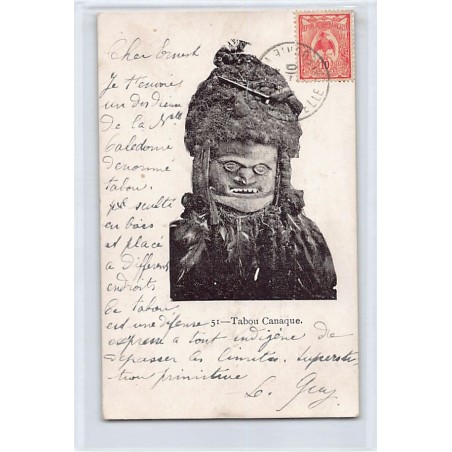 Cher Ernest
Je t'envoie
un des dieux
de la Nlle
Caledonie
denommé
tabou.
sculté
en bois
et placé
a Different
endroits
Ce tabou
est une défense
51—Tabou Canaque.
expresse a tout indigène de
depasser les limites. Supersti
tion primitive
10